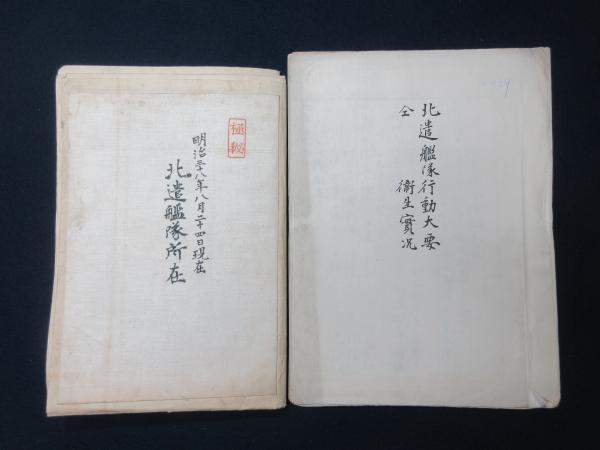 極秘
明治三八年八月二十四日現在
北遣艦隊所在
北遣艦隊行動大要
仝 衛生實况